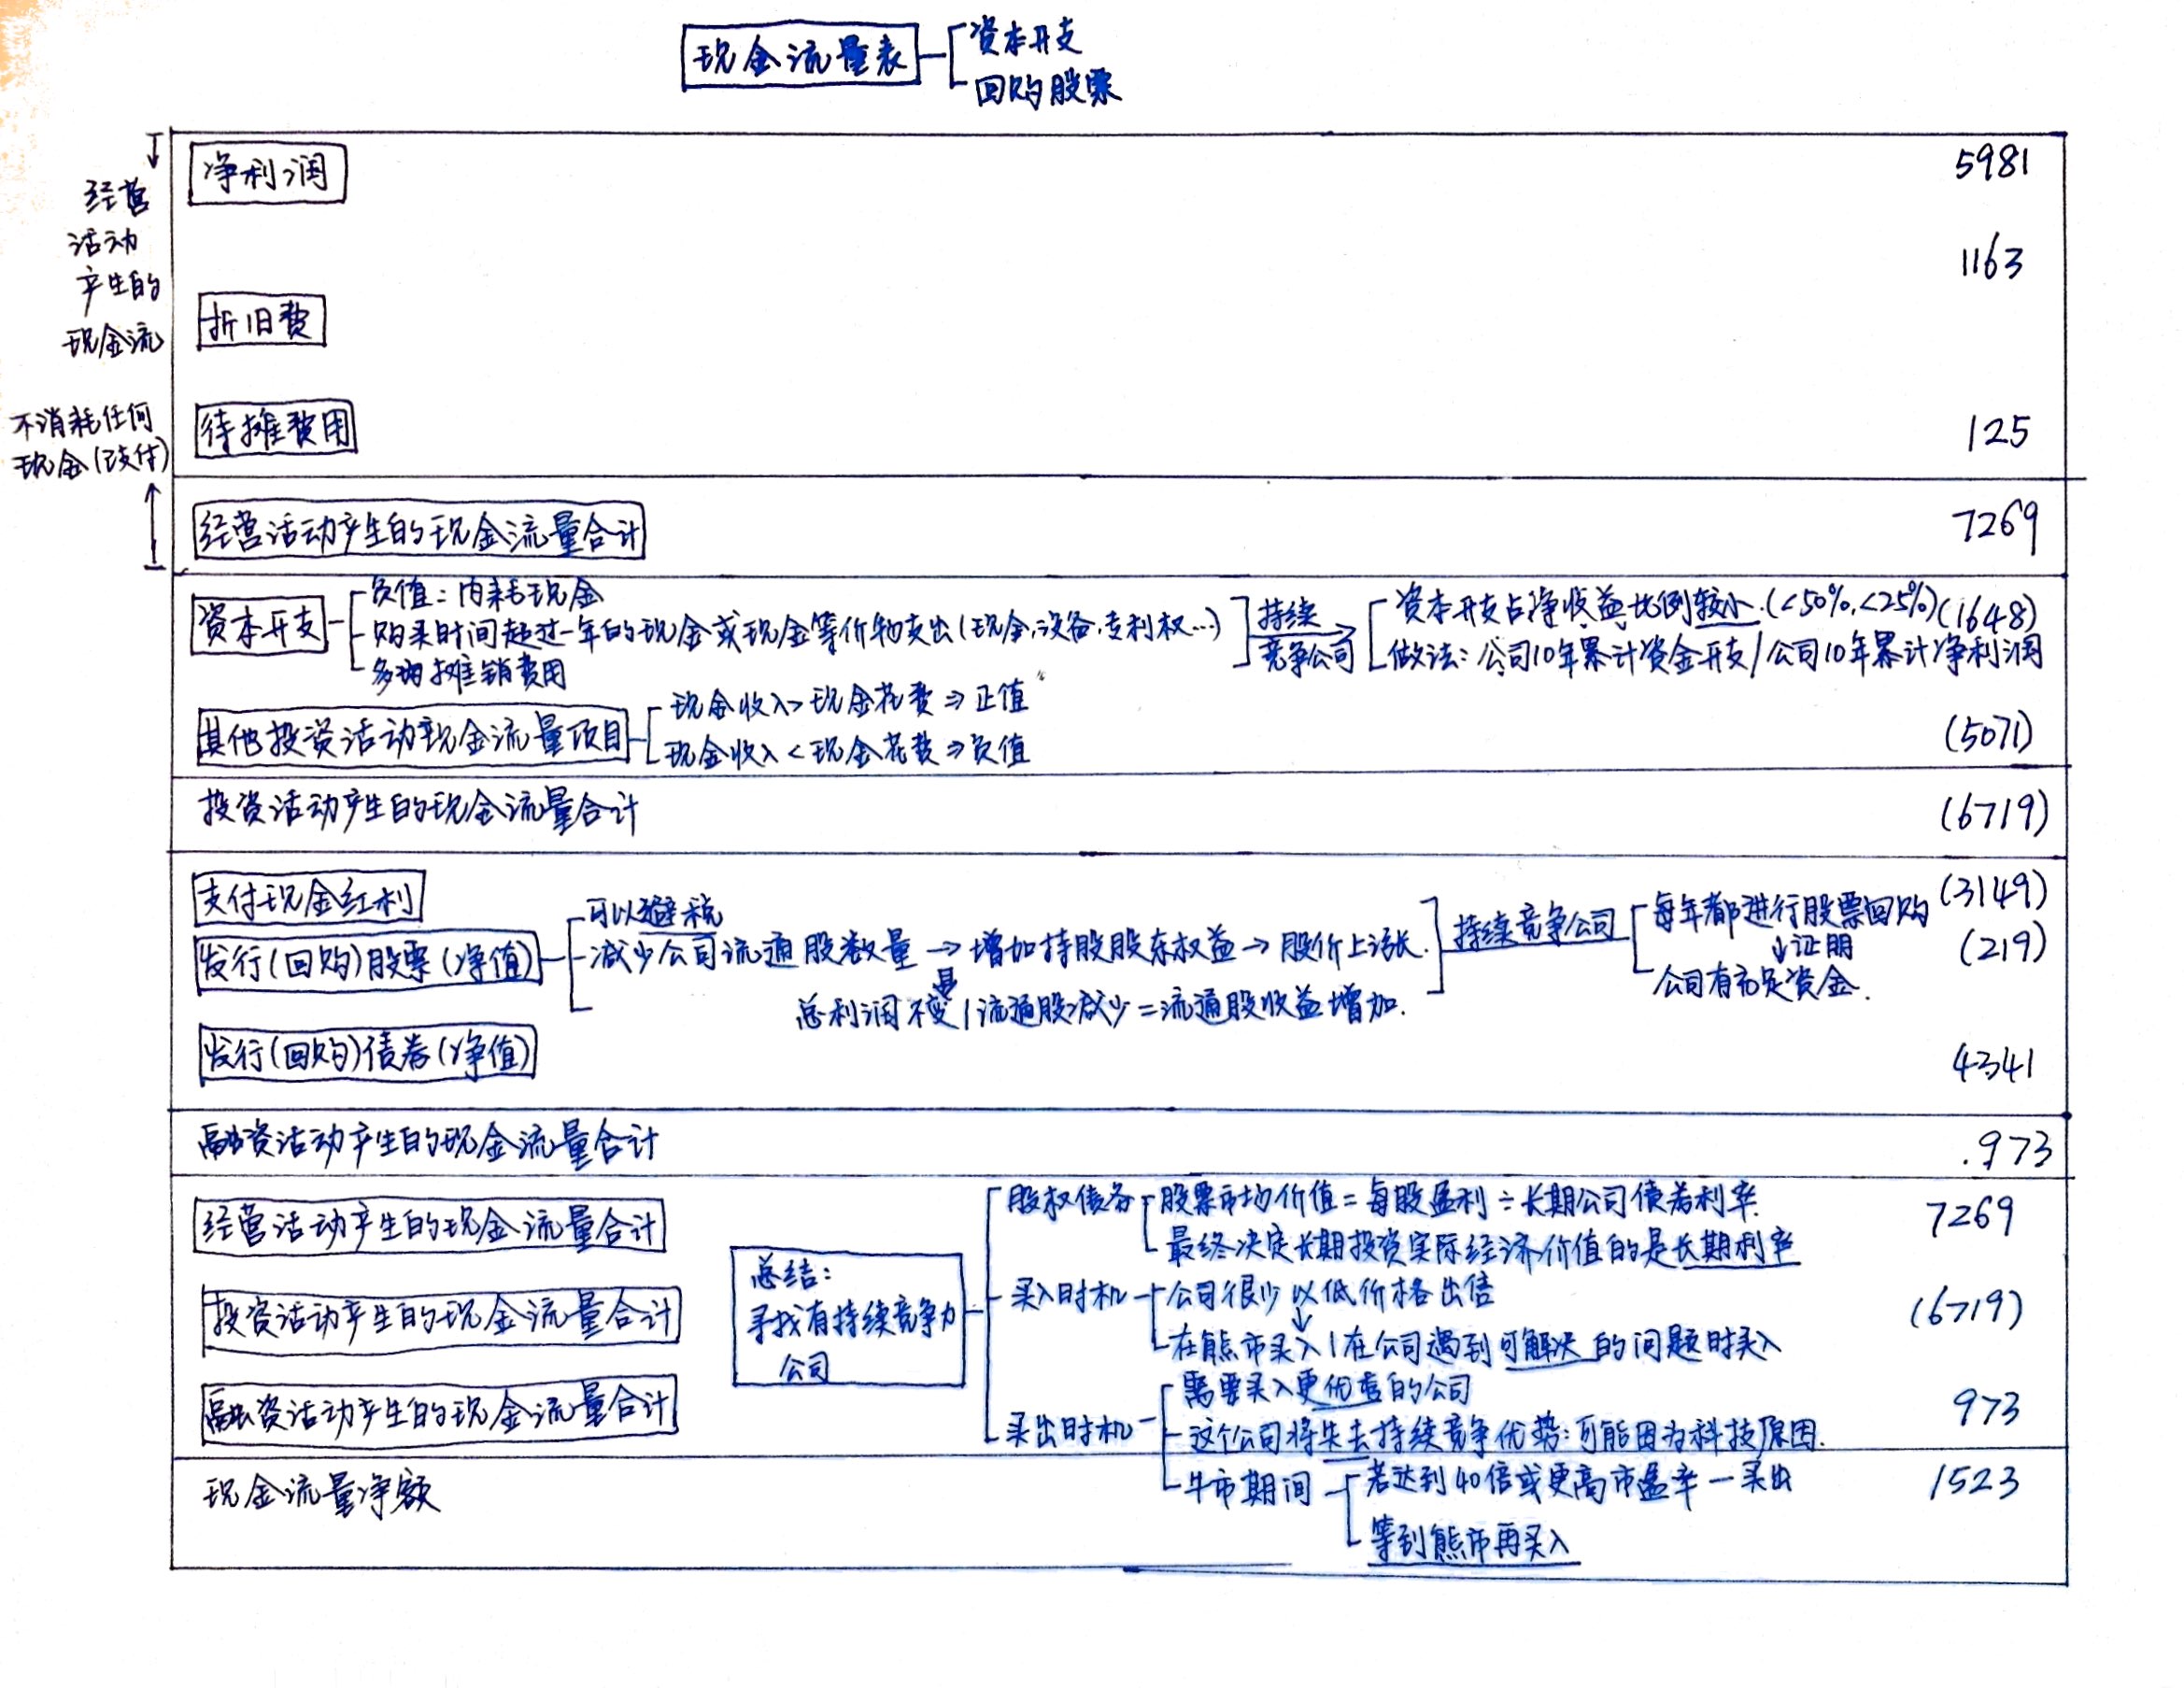 现金流量表
资本开支
回购股票
经营
活动
产生的
现金流
不消耗任何
现金(已支付)
净利润 5981
1163
折旧费
待摊费用 125
经营活动产生的现金流量合计 7269
资本开支
负值:内耗现金
购买时间超过一年的现金或现金等价物支出(现金,设备,专利权…)
多期摊销费用
持续
竞争公司
资本开支占净收益比例较小.(<50%,<25%) (1648)
做法:公司10年累计资金开支/公司10年累计净利润
其他投资活动现金流量项目
现金收入>现金花费⇒正值
现金收入<现金花费⇒负值
(5071)
投资活动产生的现金流量合计 (6719)
支付现金红利 (3149)
发行(回购)股票(净值) (219)
可以避税
减少公司流通股数量→增加持股股东权益→股价上涨.
总利润不变/流通股减少=流通股收益增加.
持续竞争公司
每年都进行股票回购
↓证明
公司有充足资金.
发行(回购)债券(净值) 4341
融资活动产生的现金流量合计 .973
经营活动产生的现金流量合计 7269
投资活动产生的现金流量合计 (6719)
融资活动产生的现金流量合计 973
现金流量净额 1523
总结:
寻找有持续竞争力
公司
股权债券
股票市场价值=每股盈利÷长期公司债券利率.
最终决定长期投资实际经济价值的是长期利率
买入时机
公司很少以低价格出售
↓
在熊市买入/在公司遇到可解决的问题时买入
卖出时机
需要买入更优秀的公司
这个公司将失去持续竞争优势:可能因为科技原因.
牛市期间
若达到40倍或更高市盈率—卖出
等到熊市再买入